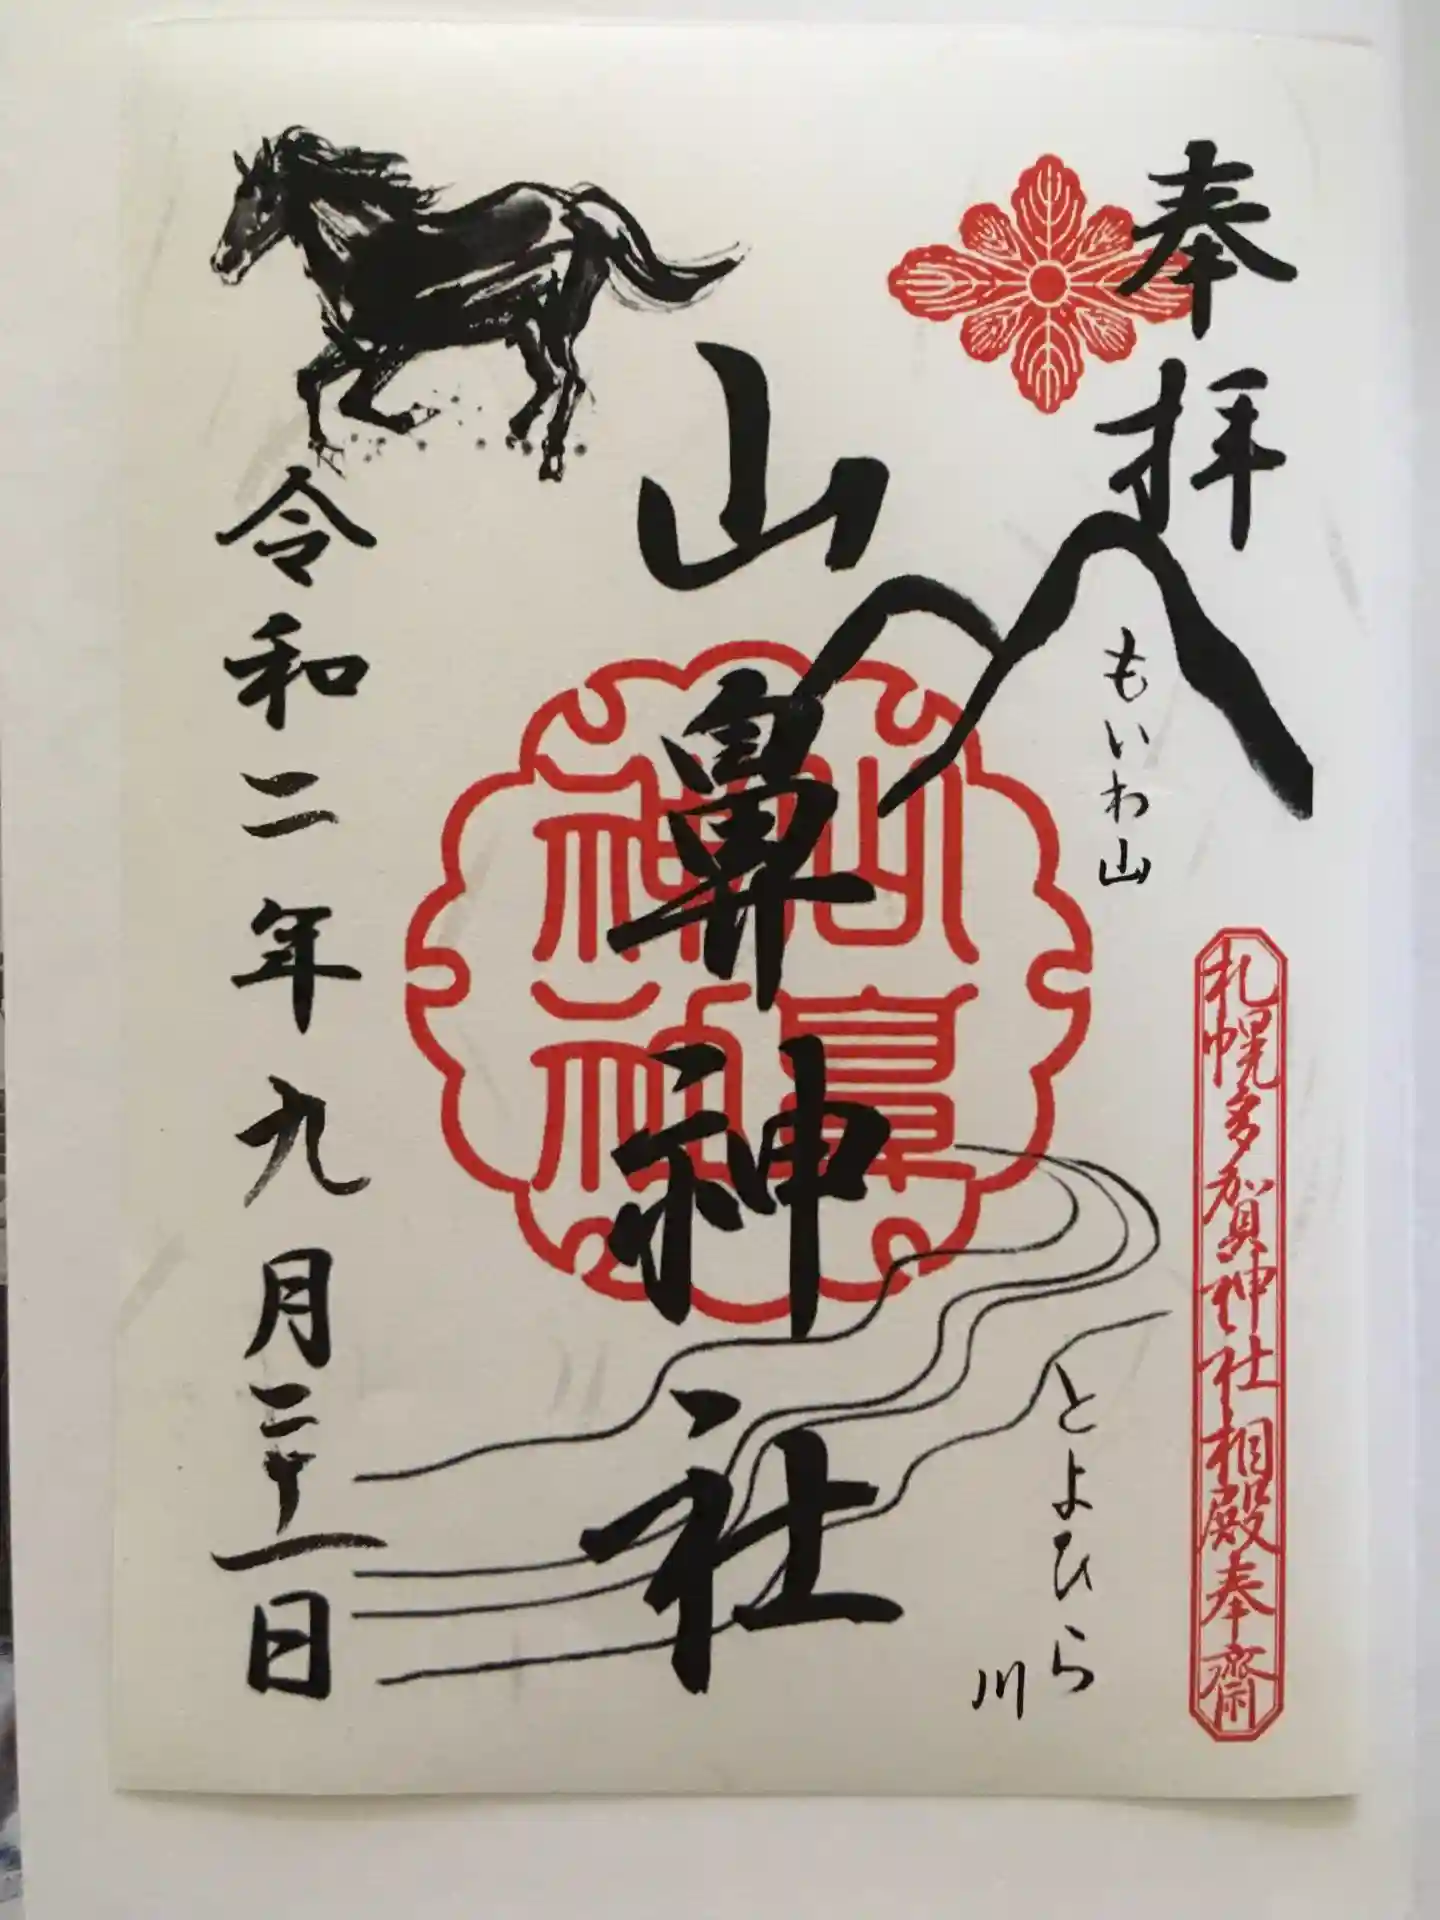 奉拝
もいわ山
札幌多賀神社相殿奉齋
とよひら
川
山鼻神社
山鼻
神社
令和二年九月二十一日